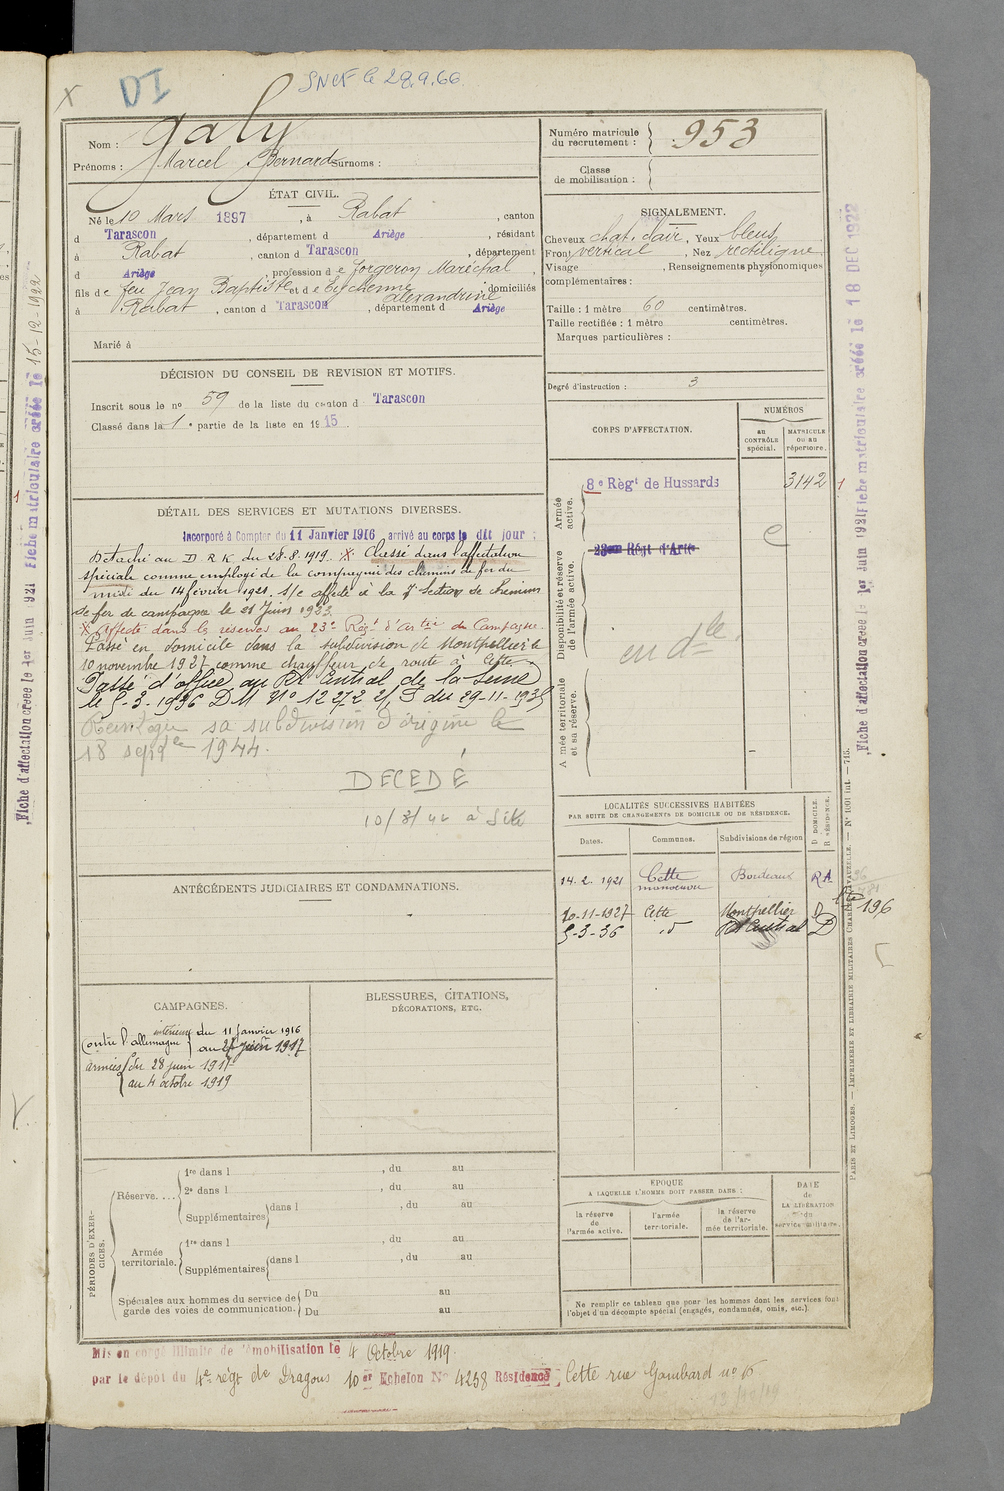 DI
SNCF le 28.9.66
X
Nom : Galy
Prénoms : Marcel Bernard Surnoms :
Numéro matricule du recrutement : 953
Classe de mobilisation :
ÉTAT CIVIL.
Né le 10 Mars 1897, à Rabat, canton
d Tarascon, département d Ariège, résidant
à Rabat, canton d Tarascon, département
d Ariège, profession d e forgeron Maréchal,
fils de feu Jean Baptiste et de Eychenne Alexandrine, domiciliés
à Rabat, canton d Tarascon, département d Ariège
Marié à
SIGNALEMENT.
Cheveux chat. clair, Yeux bleus,
Front vertical, Nez rectiligne
Visage , Renseignements physionomiques
complémentaires :
Taille : 1 mètre 60 centimètres.
Taille rectifiée : 1 mètre centimètres.
Marques particulières :
Degré d'instruction : 3
DÉCISION DU CONSEIL DE REVISION ET MOTIFS.
Inscrit sous le no 59 de la liste du canton d Tarascon
Classé dans la 1e partie de la liste en 1915.
CORPS D'AFFECTATION.
NUMÉROS
AU CONTRÔLE spécial.
MATRICULE OU AU répertoire.
Armée active.
8e Règt de Hussards
3142
Disponibilité et réserve de l'armée active.
23eme Régt d'Artie
en dle.
Armée territoriale et sa réserve.
DÉTAIL DES SERVICES ET MUTATIONS DIVERSES.
Incorporé à Compter du 11 Janvier 1916 arrivé au corps le dit jour :
Détaché au D R K. du 28.8.1919. X Classé dans l'affectation
spéciale comme employé de la compagnie des chemins de fer du
midi du 14 février 1921. S/c affecté à la 7e Section de chemins
de fer de campagne le 21 Juin 1923.
X Affecté dans les réserves au 23e Régt d'Artie de Campagne.
Passé en domicile dans la subdivision de Montpellier le
10 novembre 1927 comme chauffeur de route à Cette.
Passé d'office au Rt Central de la Seine
le 5-3-1936 DM No 1272 2/, S du 29-11-1935
sa subdivision d'origine le
18 septbre 1944.
DECEDÉ
10/8/42 à Sète
LOCALITÉS SUCCESSIVES HABITÉES
PAR SUITE DE CHANGEMENTS DE DOMICILE OU DE RÉSIDENCE.
D. DOMICILE. R. RÉSIDENCE.
Dates. Communes. Subdivisions de région
14.2.1921 Cette manoeuvre Bordeaux RA
10-11-1927 Cette Montpellier D
5-3-36 id Rt Central D
196
ANTÉCÉDENTS JUDICIAIRES ET CONDAMNATIONS.
CAMPAGNES.
Contre l'allemagne
intérieur du 11 Janvier 1916
au 27 juin 1917
armées du 28 juin 1917
au 4 octobre 1919
BLESSURES, CITATIONS,
DÉCORATIONS, ETC.
PÉRIODES D'EXERCICES.
Réserve....
1re dans l , du au
2e dans l , du au
Supplémentaires dans l , du au
Armée territoriale.
1re dans l , du au
Supplémentaires dans l , du au
Spéciales aux hommes du service de garde des voies de communication.
Du au
Du au
ÉPOQUE
A LAQUELLE L'HOMME DOIT PASSER DANS :
la réserve de l'armée active.
l'armée territoriale.
la réserve de l'armée territoriale.
DATE de LA LIBÉRATION du service militaire.
Ne remplir ce tableau que pour les hommes dont les services font
l'objet d'un décompte spécial (engagés, condamnés, omis, etc.).
Mis en congé illimité de démobilisation le 4 Octobre 1919.
par le dépôt du 4e régt de Dragons 10er Echelon No 4258 Résidence : Cette rue Gambard no 15
Fiche d'affectation créée le 1er Juin 1921
Fiche matriculaire créée le 18 DEC 1922
Fiche d'affectation créée le 1er Juin 1921
Fiche matriculaire créée le 15-12-1922
PARIS ET LIMOGES. — IMPRIMERIE ET LIBRAIRIE MILITAIRES CHARLES-LAVAUZELLE. — No 1601 int. — 715.